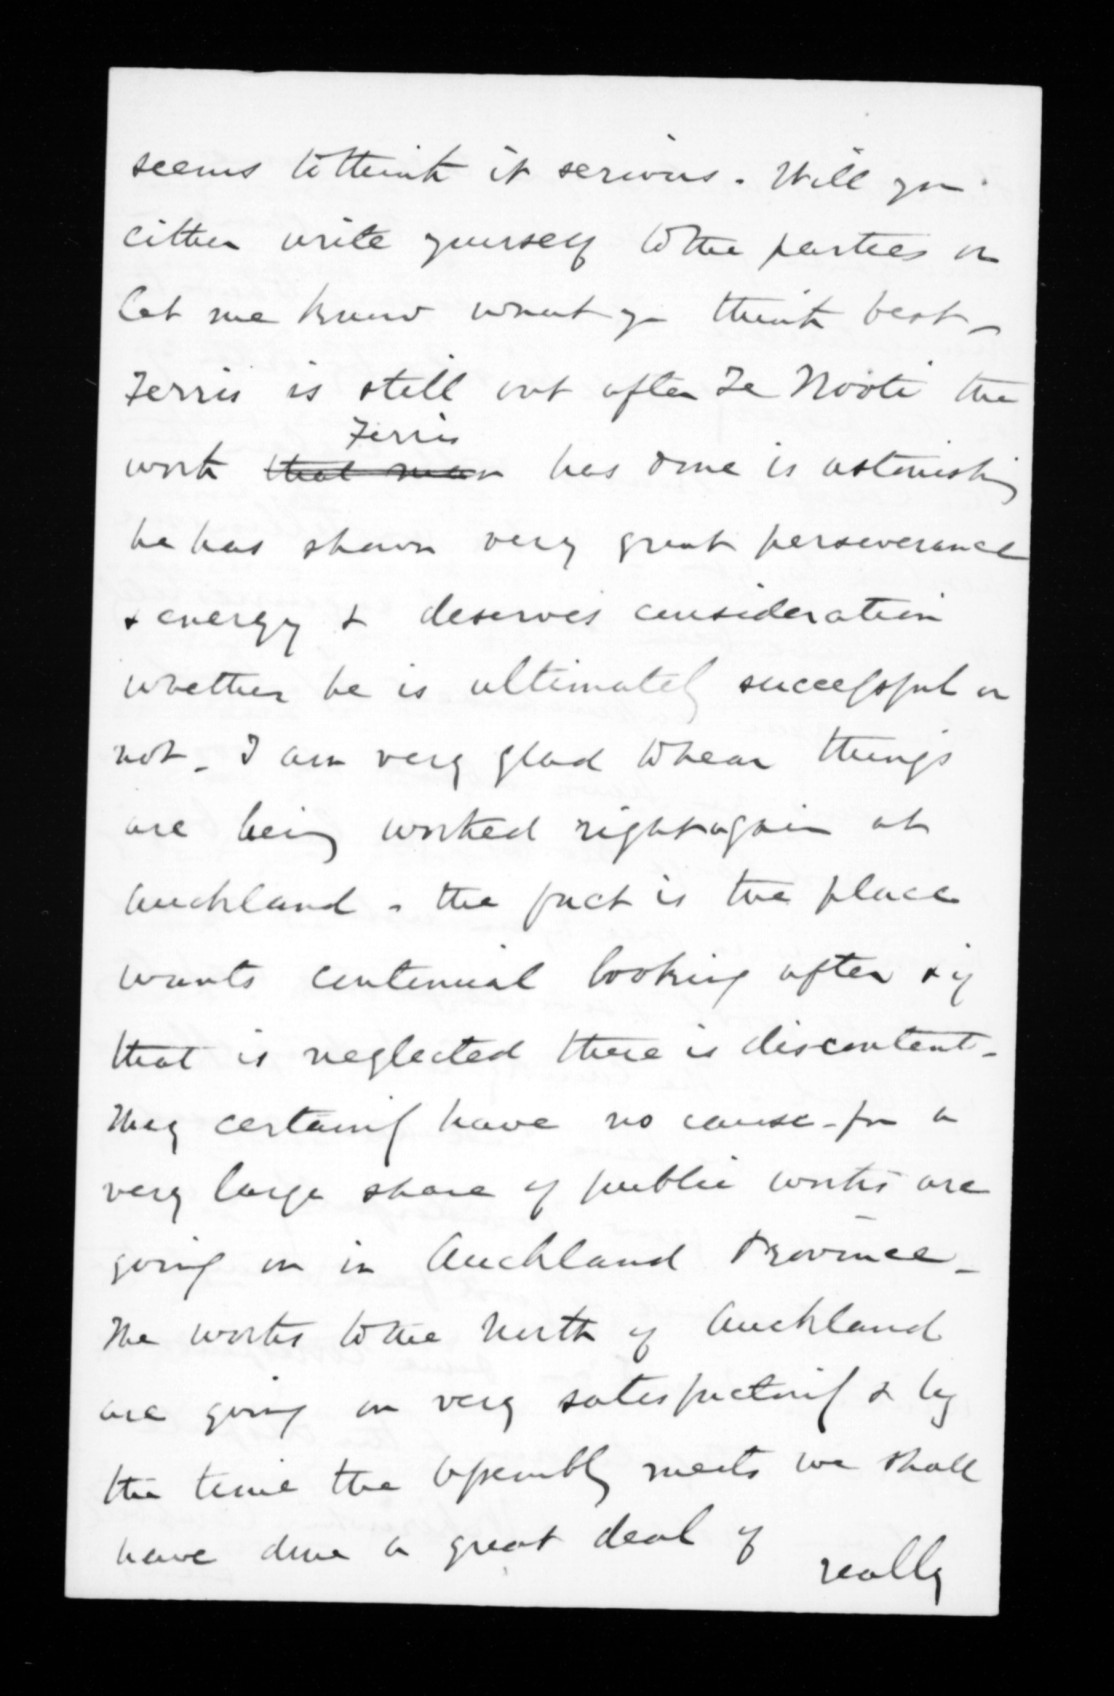 seems to think it serious. Will you
either write yourself to the parties or
let me know what you think best_
Ferris is still out after Te Kooti the
Ferris
work that man has done is astonishing
he has shown very great perseverance
& energy & deserves consideration
whether he is ultimately successful or
not_ I am very glad to hear things
are being worked right again at
Auckland - the fact is the place
wants continual looking after & if
that is neglected there is discontent_
They certainly have no cause - for a
very large share of public works are
going on in Auckland Province_
The works to the North of Auckland
are going on very satisfactorily & by
the time the Assembly meets we shall
have done a great deal of
really